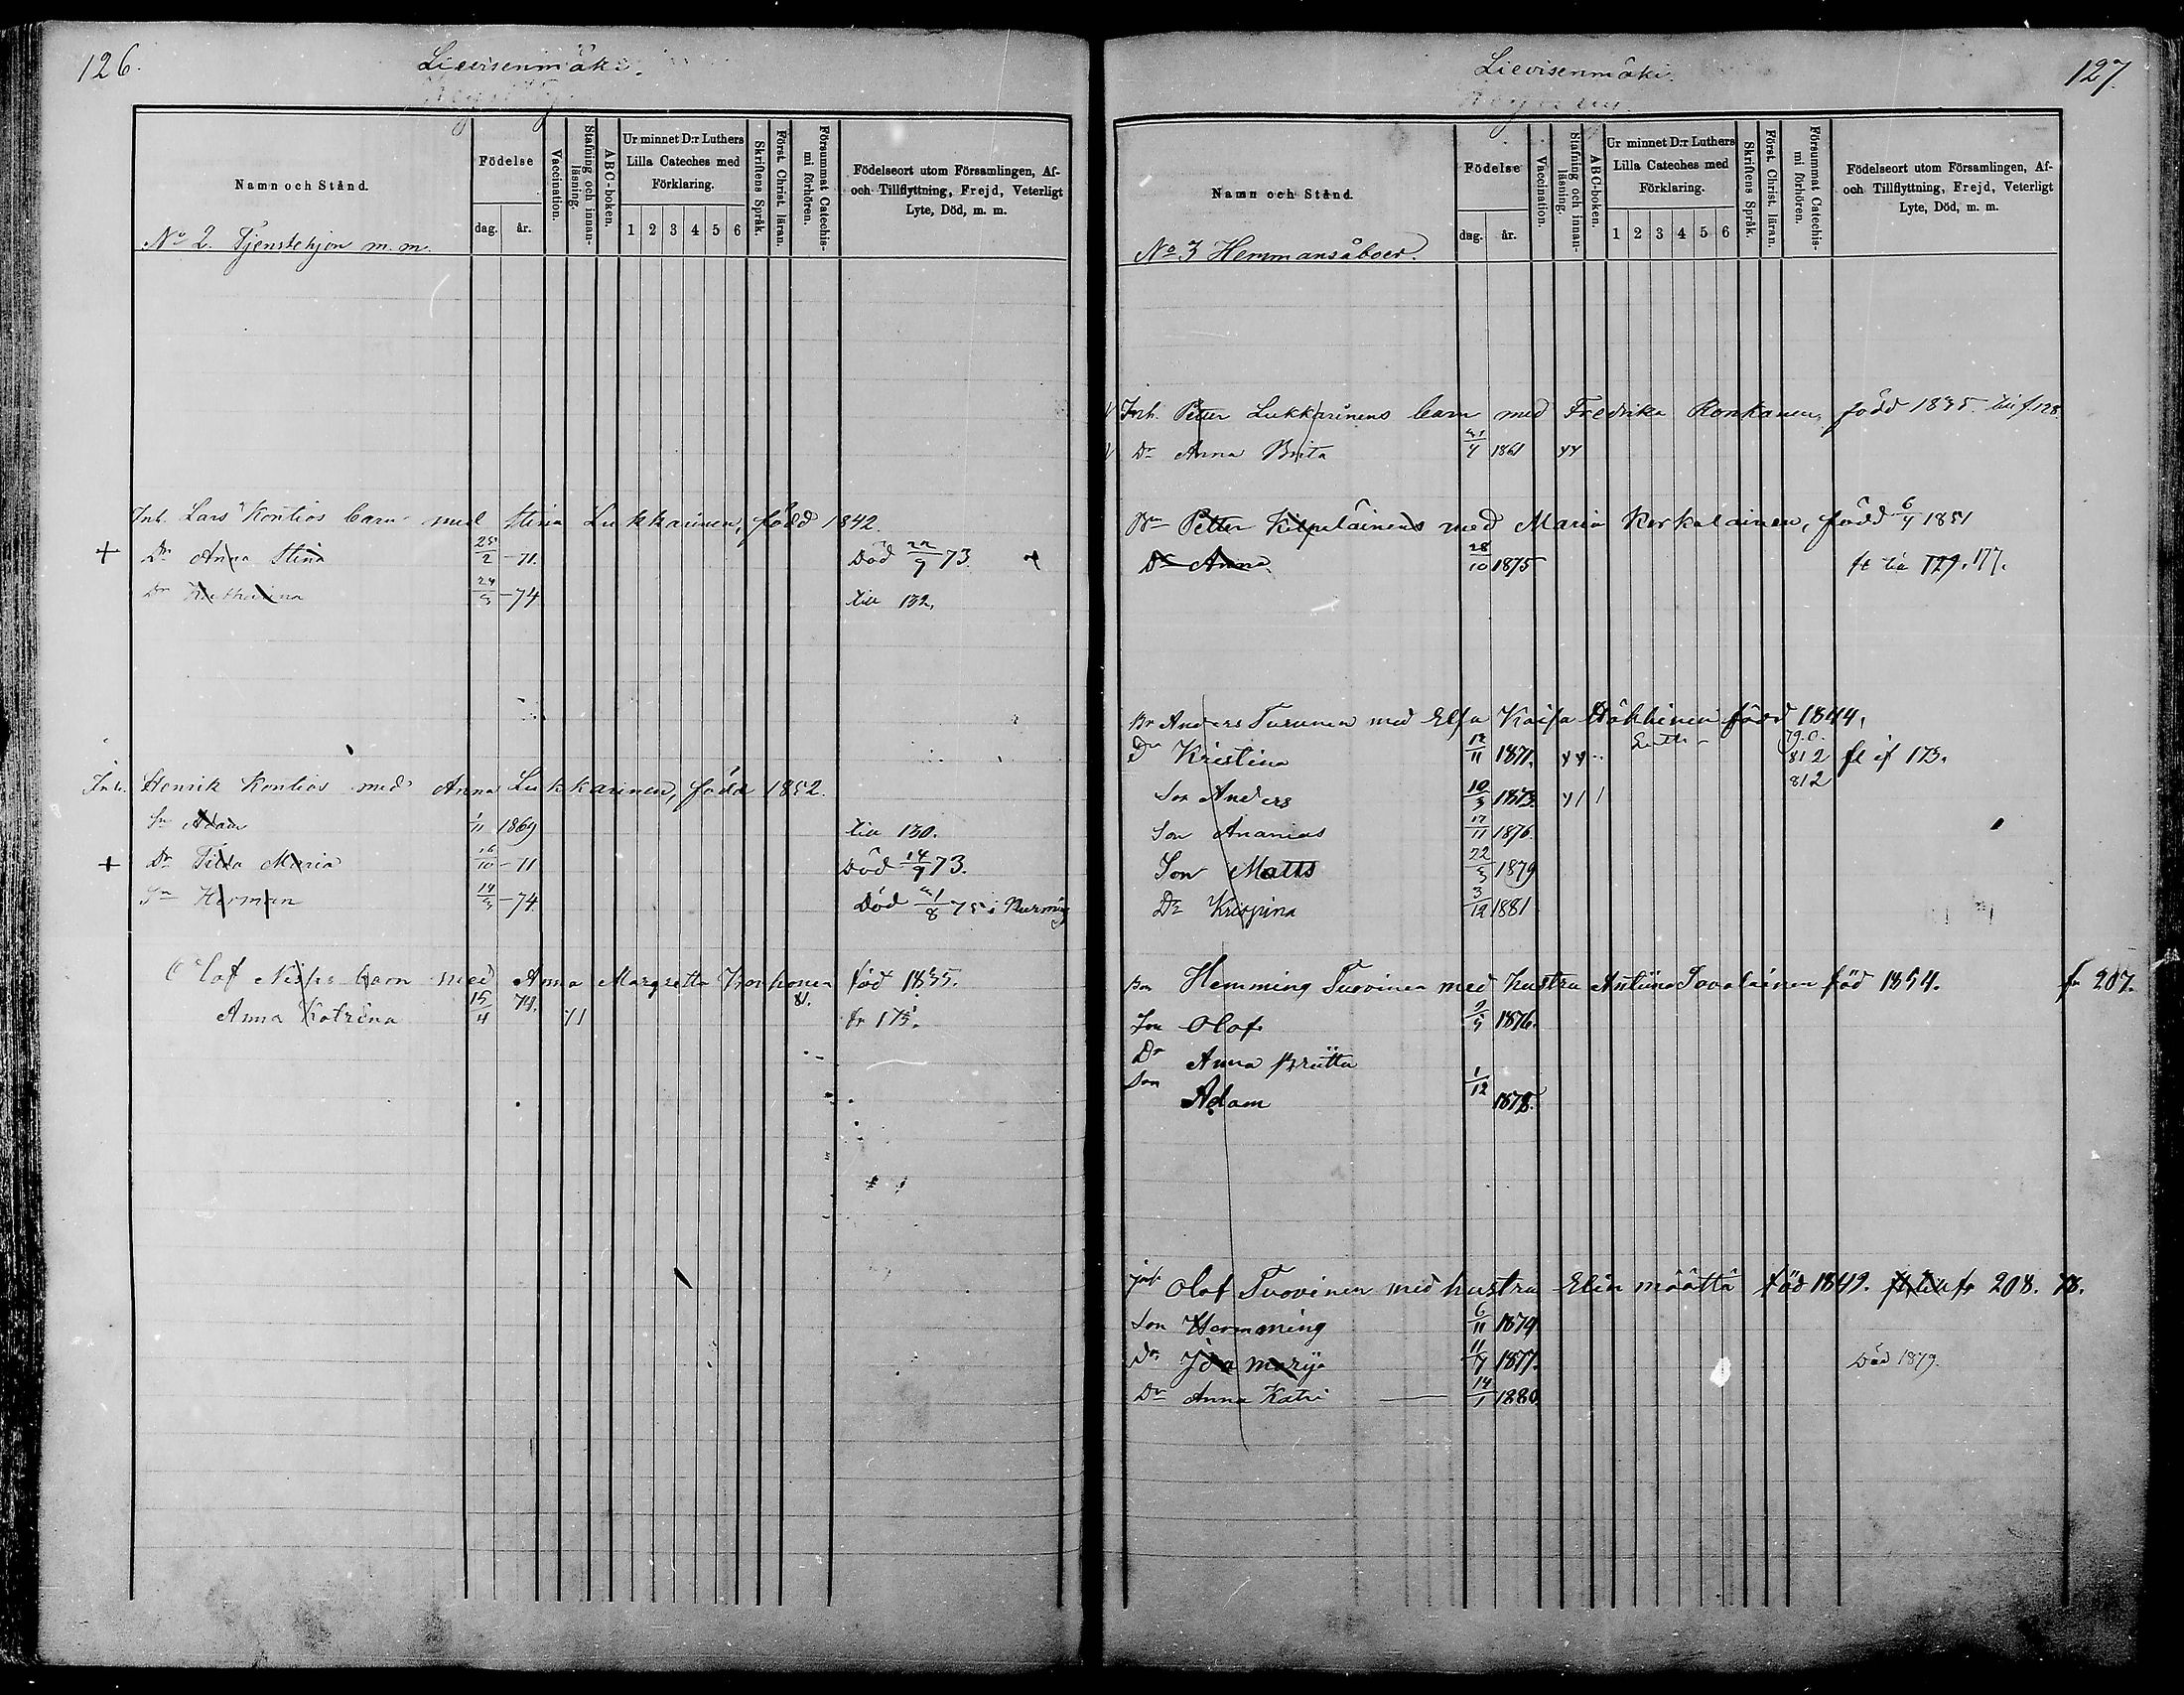 126.
Lievisenmäki.
Namn och Stånd.
Födelse
dag. år.
Vaccination.
Stafning och innanläsning.
ABC-boken.
Ur minnet D:r Luthers Lilla Cateches med Förklaring.
1 2 3 4 5 6
Skriftens Språk.
Först. Christ. läran.
Försummat Catechismi förhören.
Födelseort utom Församlingen, Af- och Tillflyttning, Frejd, Veterligt Lyte, Död, m. m.
No 2. Tjenstehjon m. m.
Inh. Lars Kontios barn med Stina Lukkarinen, född 1842.
+ Dr Anna Stina 25/2 -71. Död 22/9 73
Dr Katharina 24/3 -74 till 132.
Inh. Henrik Kontios med Anna Lukkarinen, född 1852.
Sn Adam 1/11 1869 till 130.
+ Dr Tilda Maria 16/10 -71 Död 14/9 73.
Sn Herman 14/3 -74 Död 21/8 75 i
Olof barn med Anna Margretta Korhonen född 1835.
Anna Katrina 15/4 74. 81. fr 175.
127.
Lievisenmäki.
Namn och Stånd.
Födelse
dag. år.
Vaccination.
Stafning och innanläsning.
ABC-boken.
Ur minnet D:r Luthers Lilla Cateches med Förklaring.
1 2 3 4 5 6
Skriftens Språk.
Först. Christ. läran.
Försummat Catechismi förhören.
Födelseort utom Församlingen, Af- och Tillflyttning, Frejd, Veterligt Lyte, Död, m. m.
No 3 Hemmansåboer.
Inh. Petter Lukkarinens barn med Fredrika Konkanen, född 1835. till f. 128.
Dr Anna Brita 21/4 1861
Bn Petter Kilpeläinens med Maria Kerkalainen, född 6/4 1851
Dr Anna 28/10 1875 fl till 129. 177.
Br Anders Turunen med Elsa Kaisa född 1844.
Dr Kristina 12/11 1871. 79.0. 812 fl 173.
Son Anders 10/3 1873. 812
Son Ananias 17/11 1876.
Son Matts 22/3 1879
Dr Krispina 3/12 1881
Bn Hemming Tuovinen med hustru Savolainen född 1854. fr 207.
Son Olof 2/5 1876.
Dr Anna Britta
Son Adam 1/12 1878.
Inh Olof Tuovinen med hustru Elin Määttä född 1849. fr 208. 78.
Son Hemming 6/11 1874
Dr Ida Marija 11/4 1877. Död 1879.
Dr Anna Katri 14/1 1880